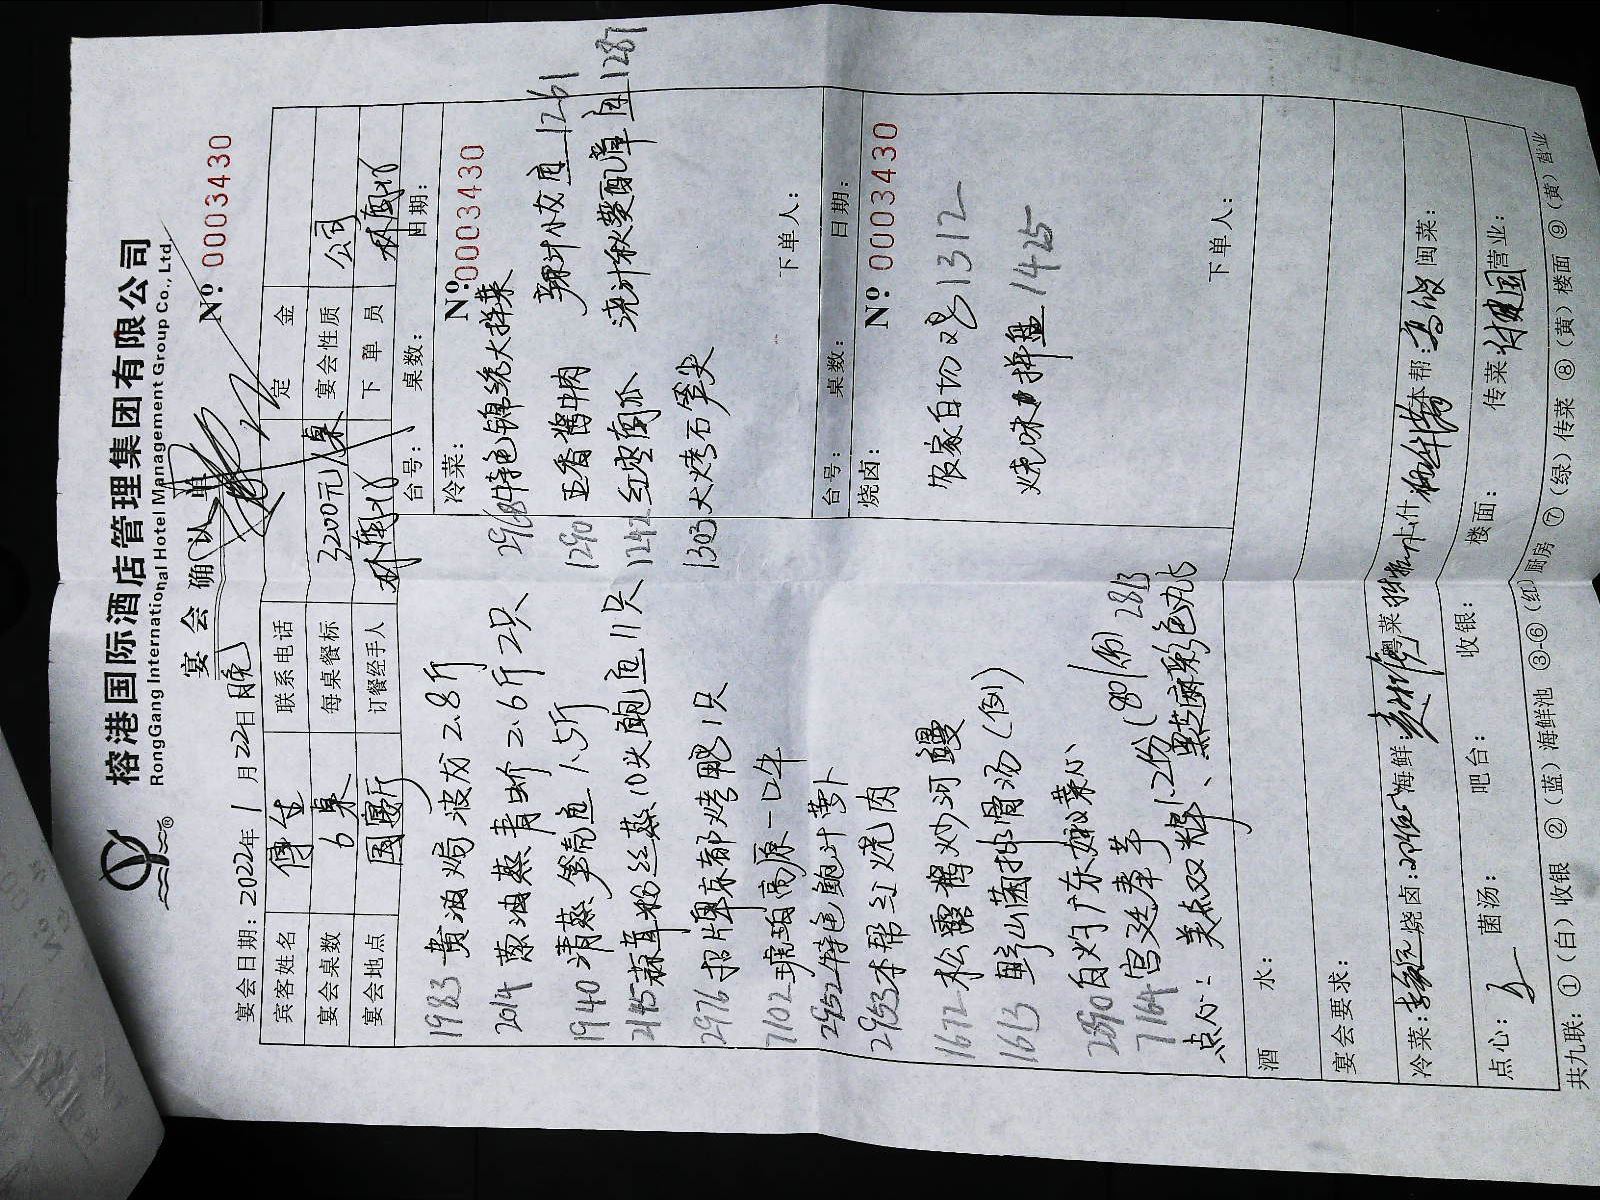 榕港国际酒店管理集团有限公司
RongGang International Hotel Management Group Co., Ltd.
宴会确认单
№: 0003430
宴会日期: 2022年1月22日 晚
宾客姓名 傅生 联系电话 定金
宴会桌数 6桌 每桌餐标 3200元/桌 宴会性质 公司
宴会地点 国宴厅 订餐经手人 下单员
台号: 桌数: 日期:
1983 黄油焗波龙2.8斤
2014 葱油蒸青蚧2.6斤2只
1940 清蒸笋壳鱼1.5斤
2145 蒜茸粉丝蒸10头鲍鱼11只
2976 招牌京都烤鸭1只
7102 琥珀高原一口牛
2952 特色鲍汁萝卜
2953 本帮红烧肉
1672 松露酱炒河鳗
1613 野山菌排骨汤(例)
2890 白灼广东娥菜心
7164 宫廷奉芋1.2份(80/份) 2813
点心: 美点双辉、黑芝麻彩色丸
冷菜: №:0003430
2968 特色锦绣大拼菜
1290 五香酱牛肉 辣汁小优鱼 1261
1242 红枣南瓜 捞汁秋葵配章鱼 1287
1303 火烤石笋尖
下单人:
台号: 桌数: 日期:
烧卤: №: 0003430
农家白切鸡 1312
烧味拼盘 1425
下单人:
酒水:
宴会要求:
冷菜: 烧卤: 海鲜: 粤菜: 上什 本帮: 闽菜:
点心: 菌汤: 吧台: 收银: 楼面: 传菜: 营业:
共九联: ①(白)收银 ②(蓝)海鲜池 ③-⑥(红)厨房 ⑦(绿)传菜 ⑧(黄)楼面 ⑨(黄)营业